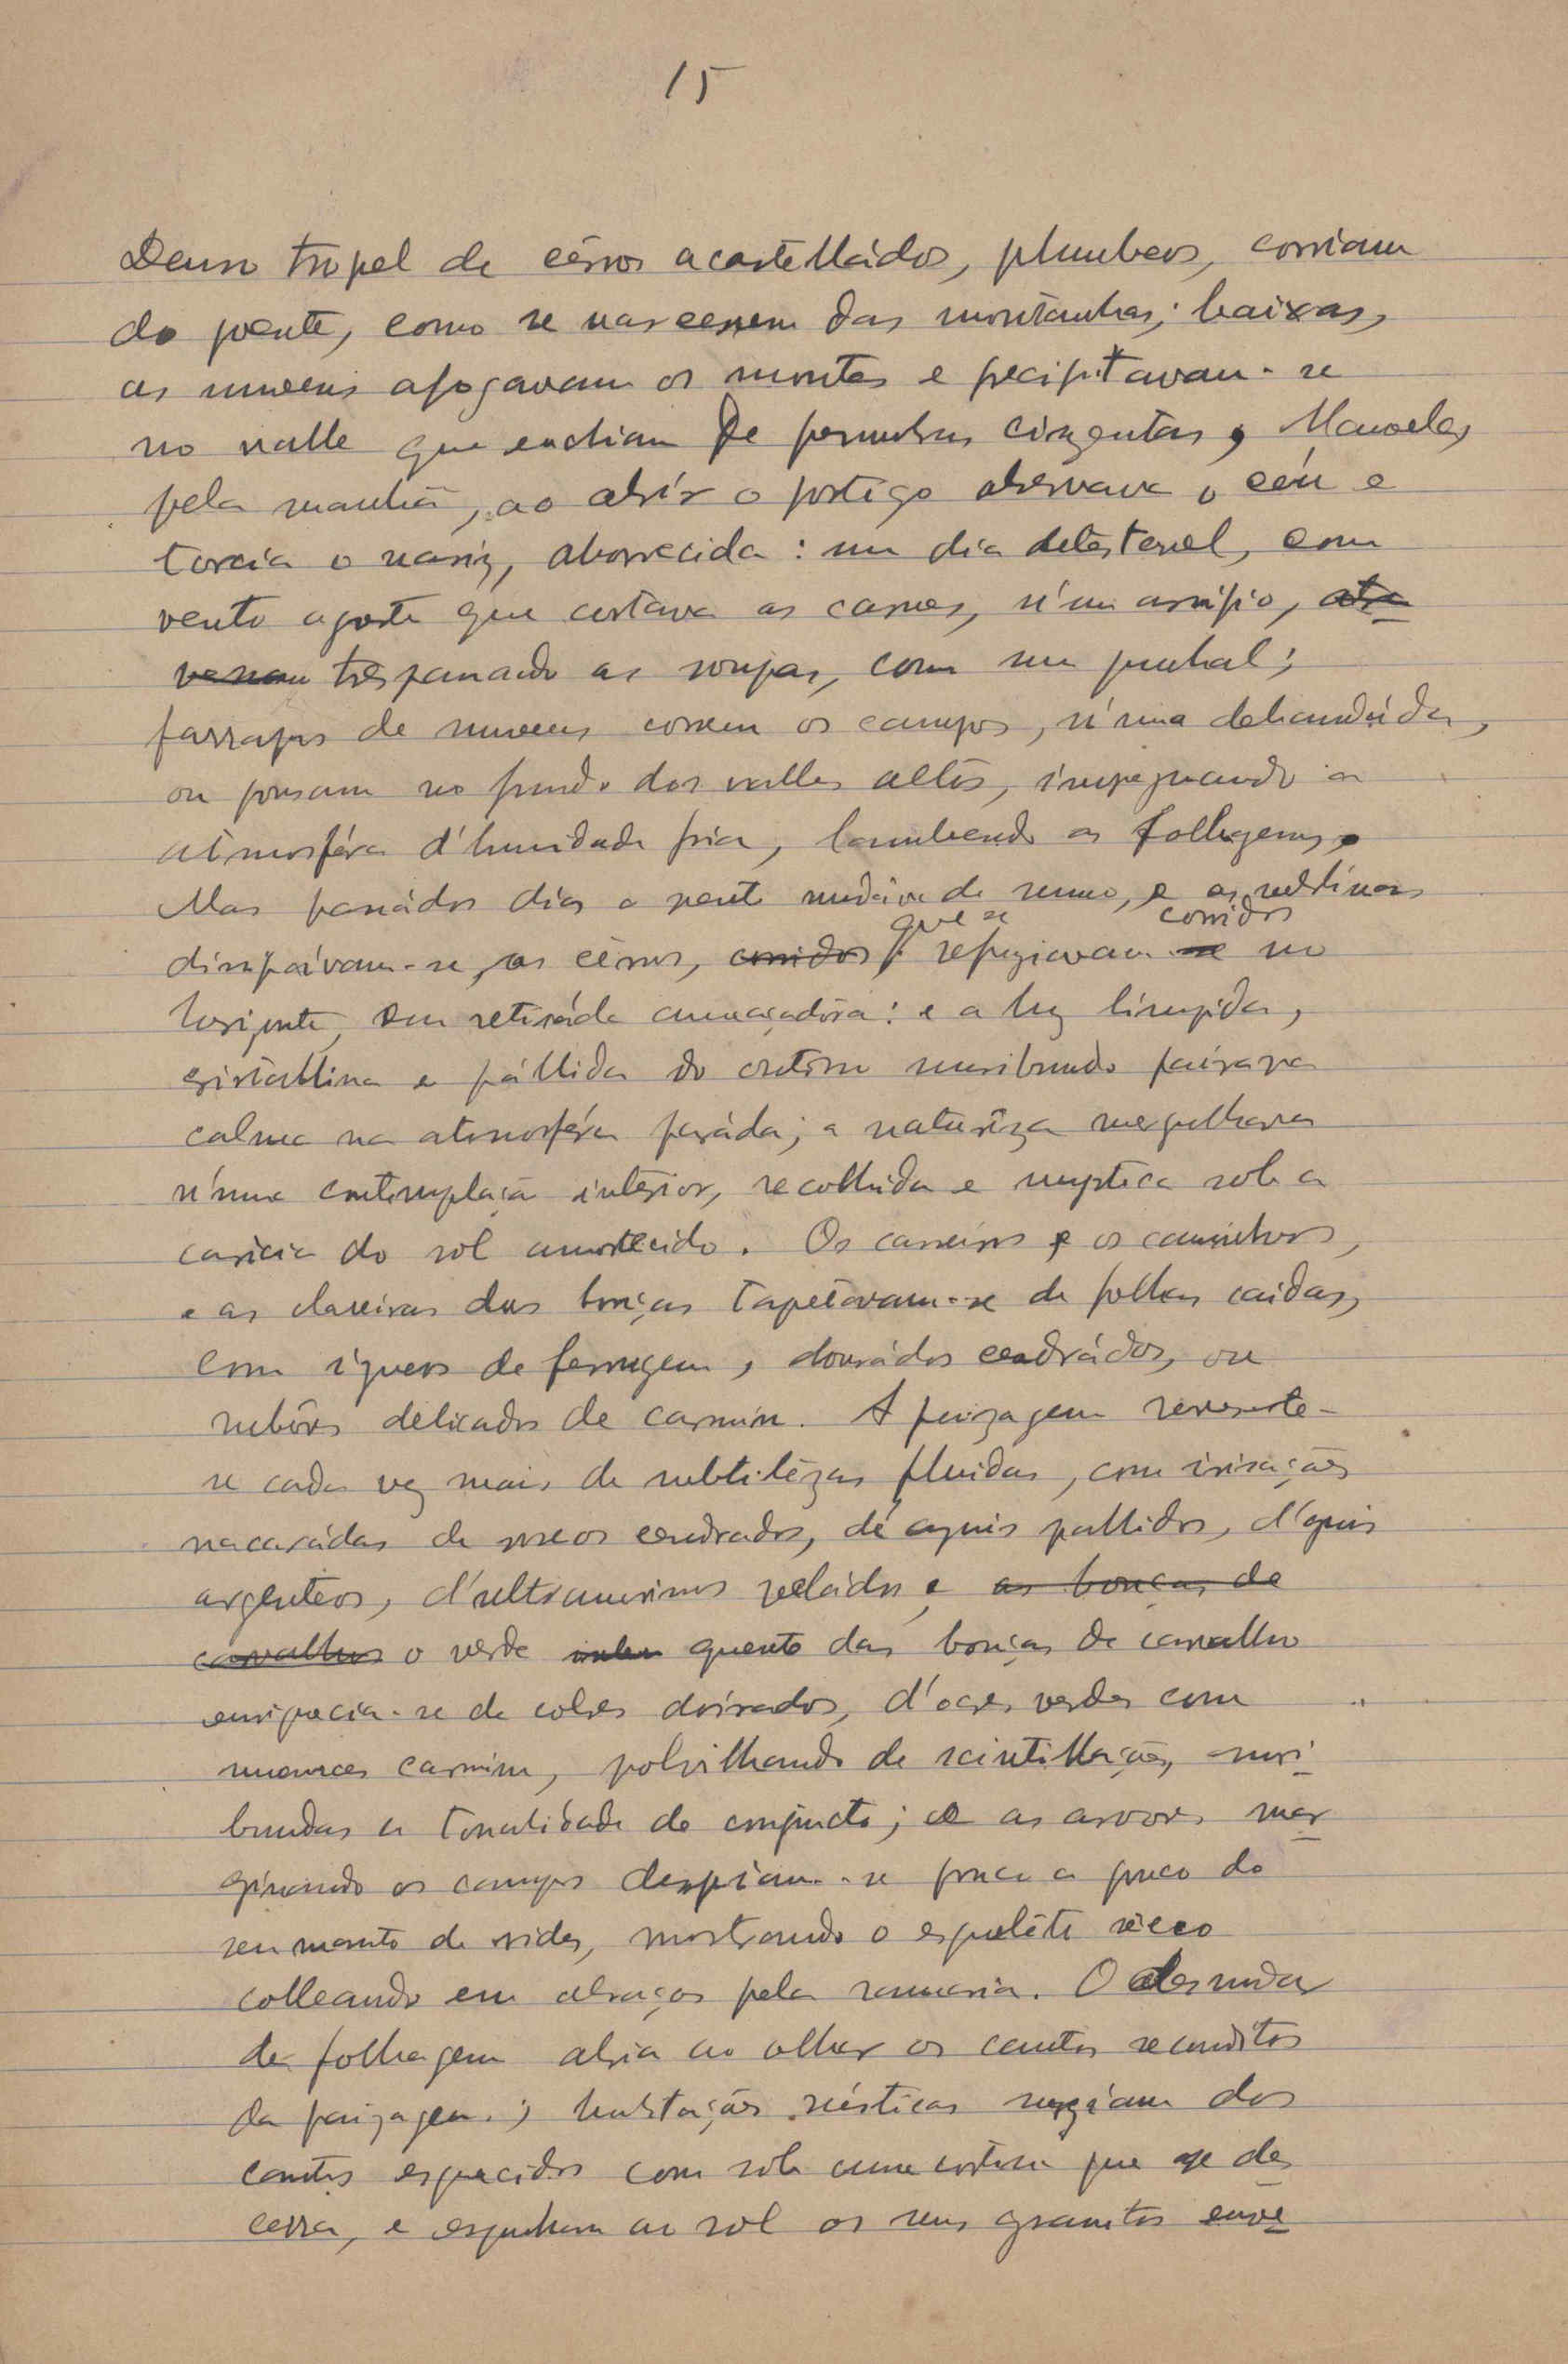 15
Denso tropel de cérros acastelládos, plumbeos, corriam
do poente, como se nascessem das montanhas; baixas,
as nuvens afogavam os montes e precipitavam-se
no valle que enchiam de penumbras cinzentas, Manoela,
pela manhã, ao abrír o postigo observava o céu e
torcia o nariz, aborrecida: um dia detestavel, com
vento agreste que cortava as carnes, n'um arripio, atra
vessan trespassando as roupas, com um punhal;
farrapos de nuvens correm os campos, n'uma debandáda,
ou pousam no fundo dos valles altos, impregnando a
atmosféra d'humidade fria, lambendo as folhagens,
Mas passádos dias o vento mudáva de rumo, e as neblinas
dissipávam-se, os cérros, corridos que se refugiavam se corridos no
horizonte, em retiráda ameaçadôra: e a luz limpida,
cristallina e pállida do outôno moribundo pairava
calma na atmosféra paráda; a naturêza mergulhava
n'uma contemplação intérior, recolhida e mystica sob a
caricia do sol amortecido. Os carreiros e os caminhos,
e as clareiras das bouças tapetavam-se de folhas caidas,
com igneos de ferrugem, dourádos cendrádos, ou
rubôres delicados de carmin. A paizagem reveste-
se cada vez mais de subtilêzas fluidas, com irisações
nacarádas de roseos cendrados, de azuis pallidos, d'azuis
argenteos, d'ultramarinos veládos e as bouças de
carvalhos o verde quente das bouças de carvalho
enriquecia-se de cobres doirados, d'ocres verdes com
nuances carmim, polvilhando de scintillações, mori
bundas a tonalidade do conjuncto; e as arvores mar
ginando os campos despiam-se pouco a pouco do
seu manto de vides, mostrando o esqueléto sêcco
colleando em abraços pela ramaria. O desnudar
da folhagem abria ao olhar os cantos reconditos
da paizagem; habitações rústicas surgiam dos
cantos esquecidos com sob uma cortina que se des
cerra, e espunham ao sol os seus granitos enve